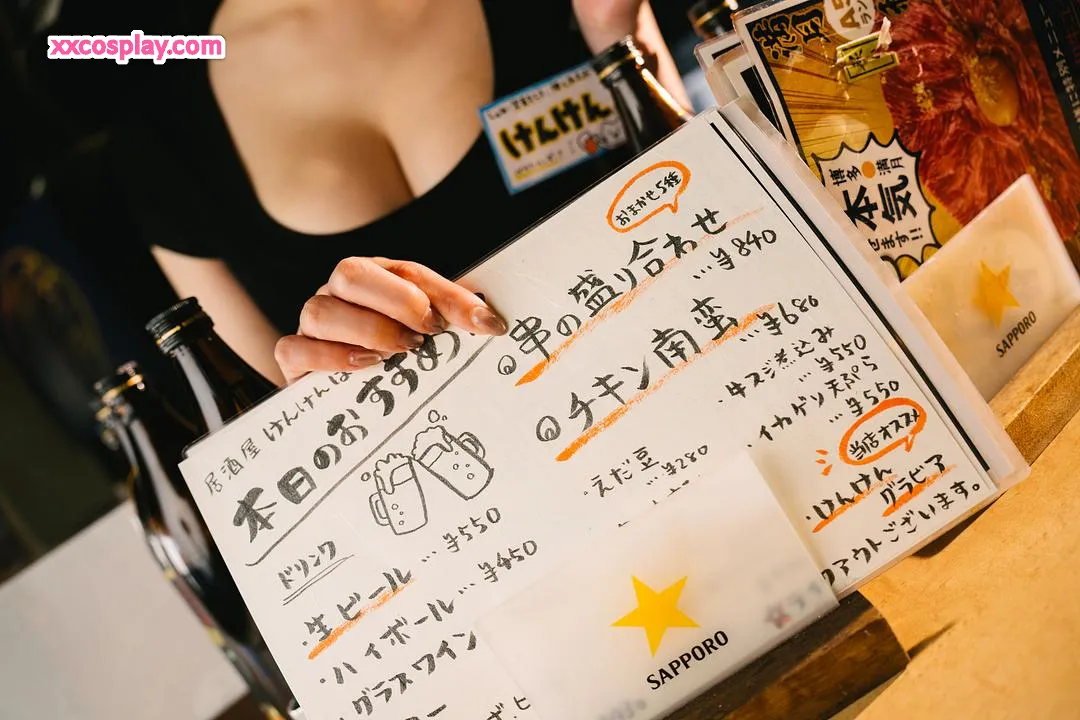 xxcosplay.com
けんけん
居酒屋 けんけんは
本日のおすすめ
ドリンク
・生ビール…¥550
・ハイボール…¥450
・グラスワイン
おまかせ5種
◎串の盛り合わせ
…¥840
◎チキン南蛮…¥680
・えだ豆
…¥280
・牛スジ煮込み
…¥550
・イカゲソ天ぷら
…¥550
当店オススメ
・けんけん
グラビア
アウトございます。
SAPPORO
SAPPORO
博多 満月
本気
せます!!